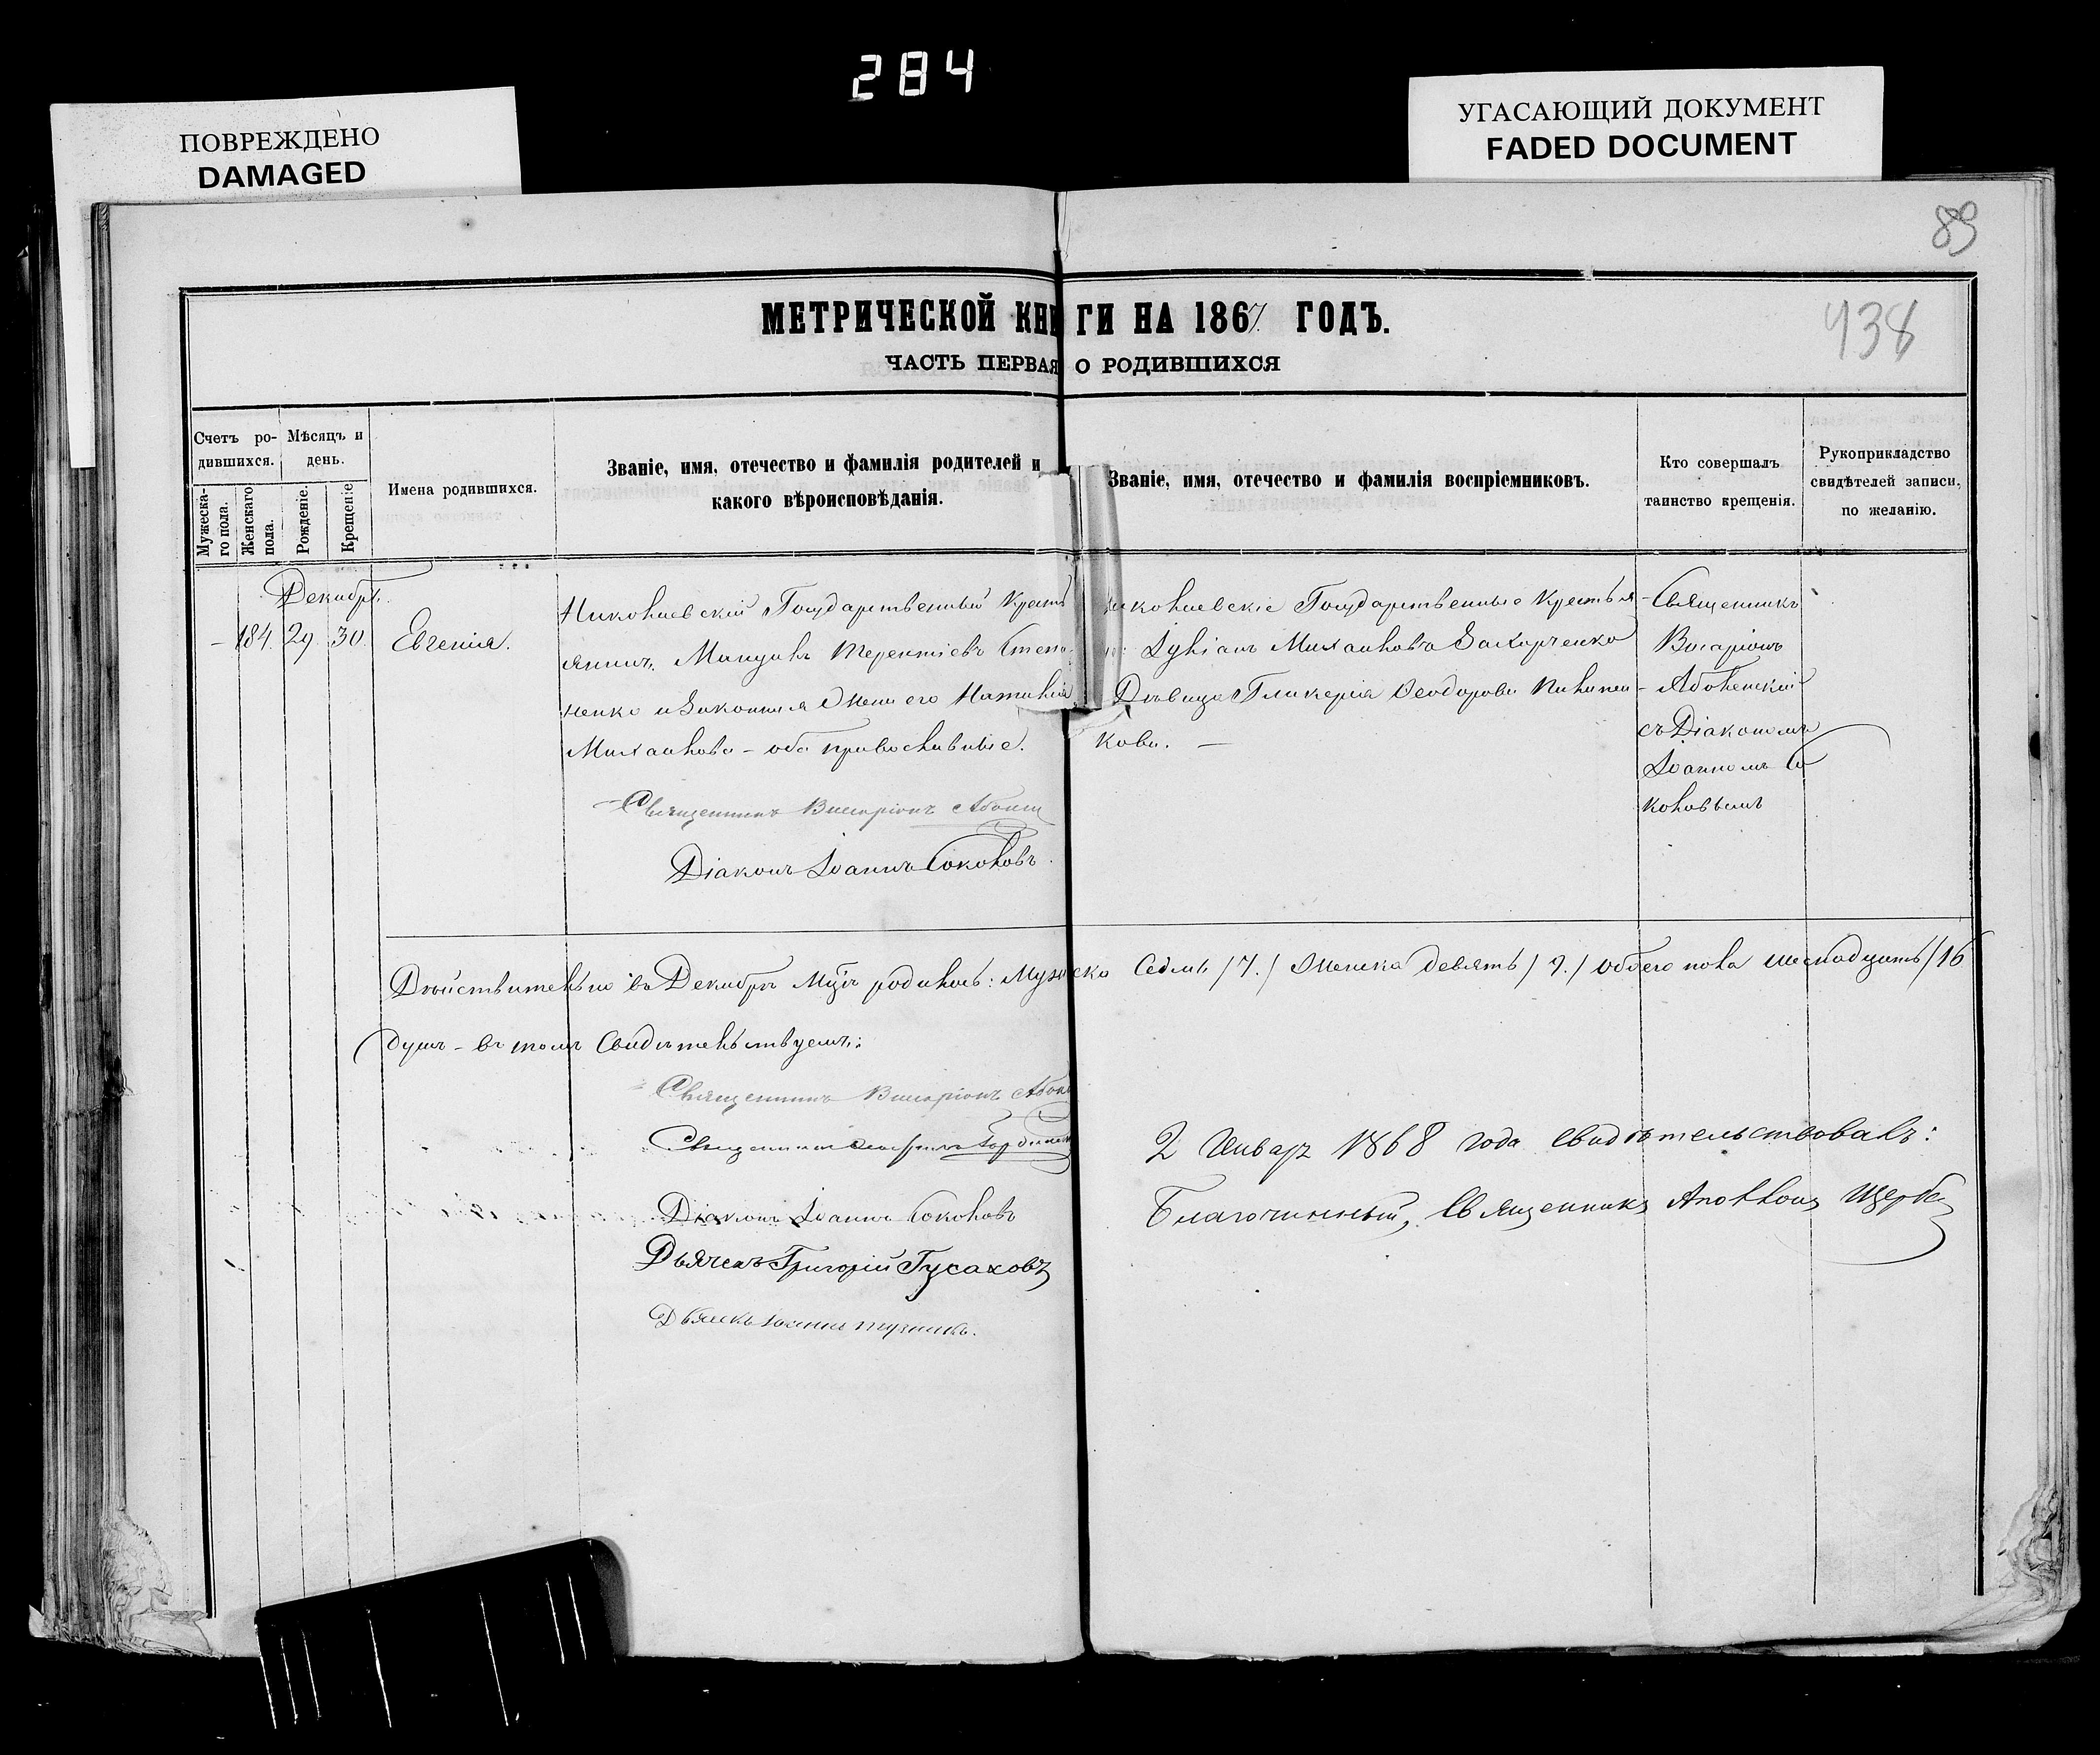 284
ПОВРЕЖДЕНО
DAMAGED
УГАСАЮЩИЙ ДОКУМЕНТ
FADED DOCUMENT
89
438
МЕТРИЧЕСКОЙ КНИГИ НА 1867 ГОДЪ.
ЧАСТЬ ПЕРВАЯ О РОДИВШИХСЯ
Счетъ ро-
дившихся.
Мужеска-
го пола.
Женскаго
пола.
Мѣсяцъ и
день.
Рожденіе.
Крещеніе
Имена родившихся.
Званіе, имя, отечество и фамилія родителей и
какого вѣроисповѣданія.
Званіе, имя, отечество и фамилія воспріемниковъ.
Кто совершалъ
таинство крещенія.
Рукоприкладство
свидѣтелей записи,
по желанію.
Декабрь.
184. 29. 30.
Евгенія.
Николаевскій Государственный Кресть
янинъ Терентіевъ Степа
ненко и Законная Жена его Наталія
Михайлова - оба православные.
Священникъ Виссаріонъ
Діаконъ Іоаннъ Соколовъ.
Николаевскіе Государственные Крестья
Михайловъ Захарченко
Дѣвица Гликерія Ѳеодорова
кова. —
Священникъ
Висаріонъ
съ Діакономъ
Іоанномъ Со
коловымъ
Дѣйствительно въ Декабрѣ Мцѣ родилось: Мужеска Седмь /7./ Женска девять /9./ обоего пола шеснадцать /16
душъ - въ томъ Свидѣтельствуемъ:
Священникъ Виссаріонъ
Священникъ
Діаконъ Іоаннъ Соколовъ
Дьячекъ Григорій Гусаковъ
Дьячекъ
2 Январ 1868 года свидѣтельствовалъ:
Благочинный, Священникъ Аполлонъ